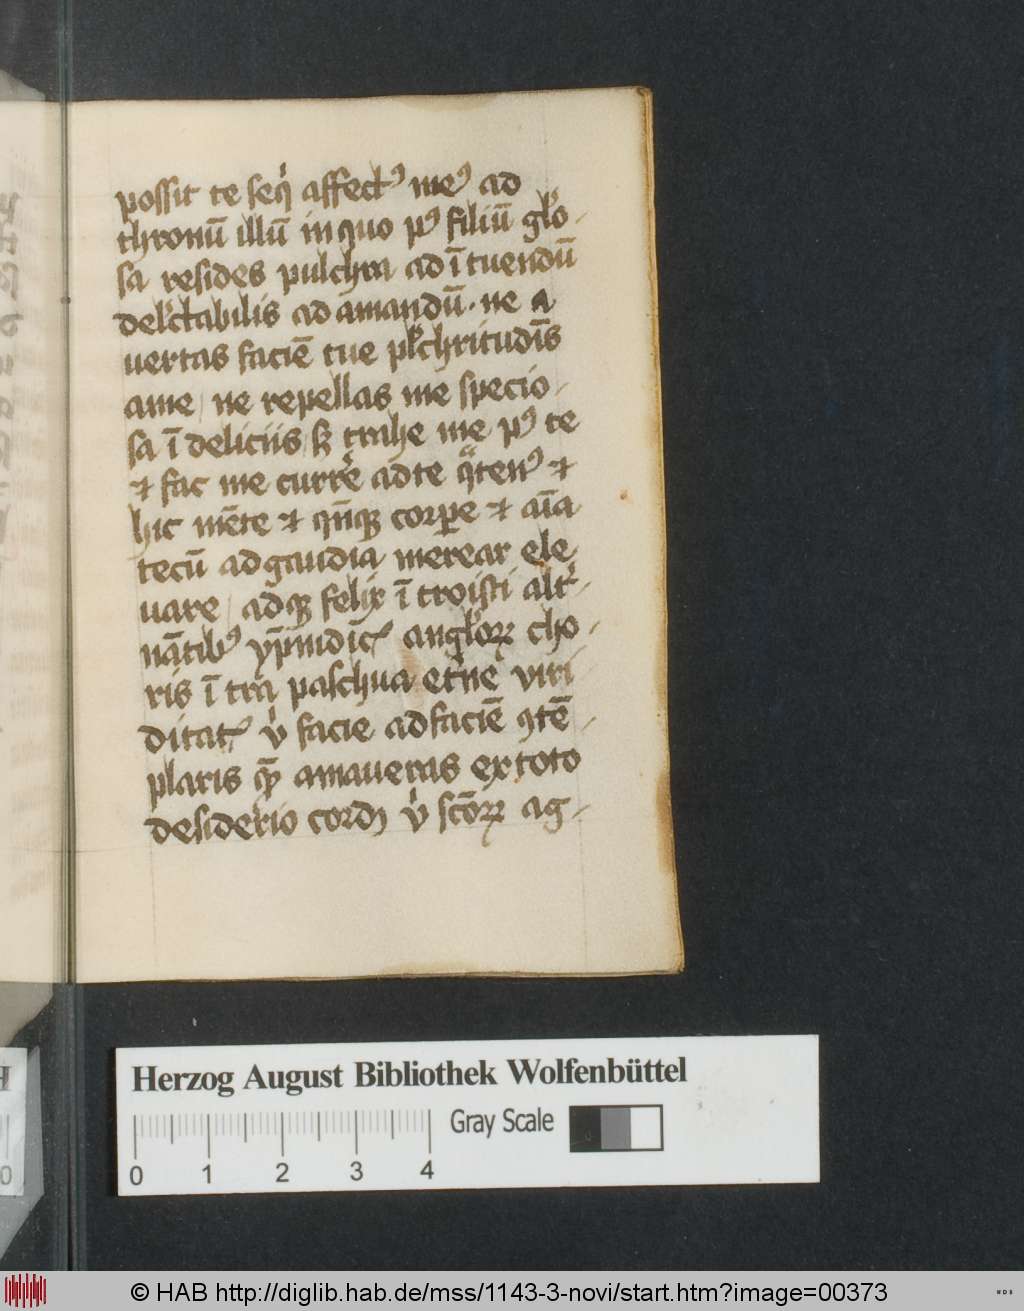 possit te seq̉ affect᾿ me᾿ ad
thronū illū in quo p᾿ filiū gło-
sa resides pulchra ad ītuendū
delc̉tabilis ad amandū · ne a
uertas faciē tue płchritudīs
a me / ne repellas me specio-
sa ī deliciis / sꝫ trahe me p᾿ te
⁊ fac me currē ad te qͣten᾿ ⁊
hic mēte ⁊ qn̄qꝫ corꝑe ⁊ aīa
tecū ad gaudia merear ele
uare / adqꝫ felix ītroisti alt̉-
nātib᾿ yp̄nidīcꝭ angłoꝝ cho-
ris ī tr̄a paschua et̉ne viri
ditatꝭ v̉ facie ad faciē ꝯtē-
plaris qm̄ amaueras ex toto
desiderio cordꝭ v̉ scōꝝ ag-
Herzog August Bibliothek Wolfenbüttel
Gray Scale
0 1 2 3 4
© HAB http://diglib.hab.de/mss/1143-3-novi/start.htm?image=00373